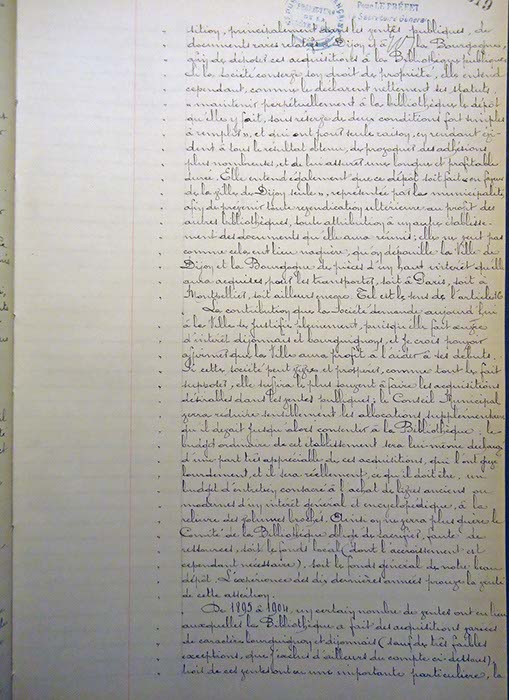 Pour LE PRÉFET
Secrétaire Général
119
sition, principalement dans les ventes publiques, de
documents rares relatifs à Dijon et à la Bourgogne,
afin de déposer ces acquisitions à la Bibliothèque publique
où la Société conserve son droit de propriété, elle entend
cependant, comme le déclarent nettement ses statuts,
"maintenir perpétuellement à la bibliothèque le dépôt
qu'elle y fait, sous réserve de deux conditions fort simples
à remplir», et qui ont pour seule raison, en rendant évi-
dent à tous le résultat obtenu, de provoquer des adhésions
plus nombreuses, et de lui assurer une longue et profitable
durée. Elle entend également que ce dépôt soit fait en faveur
de la ville de Dijon seule, représentée par les municipalités
afin de prévenir toute revendication ultérieure au profit des
autres bibliothèques, toute attribution à un autre établisse-
ment des documents qu'elle aura réunis; elle ne veut pas
comme cela eut lieu naguère, qu'on dépouille la Ville de
Dijon et la Bourgogne de pièces d'un haut intérêt qu'elle
aura acquises, pour les transporter, soit à Paris, soit à
Montpellier, soit ailleurs encore. Tel est le sens de l'article 16
La contribution que la Société demande aujourd'hui
à la Ville se justifie également, puisqu'elle fait œuvre
d'intérêt dijonnais et bourguignons, et je crois pouvoir
affirmer que la Ville aura profit à l'aider à ses débuts.
Si cette société peut vivre et prospérer, comme tout le fait
supposer, elle suffira le plus souvent à faire les acquisitions
désirables dans les ventes publiques; le Conseil Municipal
verra réduire sensiblement les allocations supplémentaires
qu'il devait jusqu'alors consentir à la Bibliothèque; le
budget ordinaire de cet établissement sera lui-même
d'une part très appréciable de ces acquisitions, qui l'ont grevé
lourdement, et il sera réellement, ce qu'il doit être, un
budget d'entretien consacré à l'achat de livres anciens ou
modernes d'un intérêt général et encyclopédique, à la
reliure des volumes brochés. Ainsi on ne verra plus guère le
Comité de la Bibliothèque obligé de sacrifier, faute de
ressources, soit le fonds local (dont l'accroissement est
cependant nécessaire), soit le fonds général de notre beau
dépôt. L'expérience des dix dernières années prouve la vérité
de cette assertion.
De 1893 à 1904, un certain nombre de ventes ont eu lieu
auxquelles la Bibliothèque a fait des acquisitions variées
de caractère bourguignon et dijonnais (sauf de très faibles
exceptions, que j'exclus d'ailleurs du compte ci-dessous)
trois de ces ventes ont eu une importante particulière, la